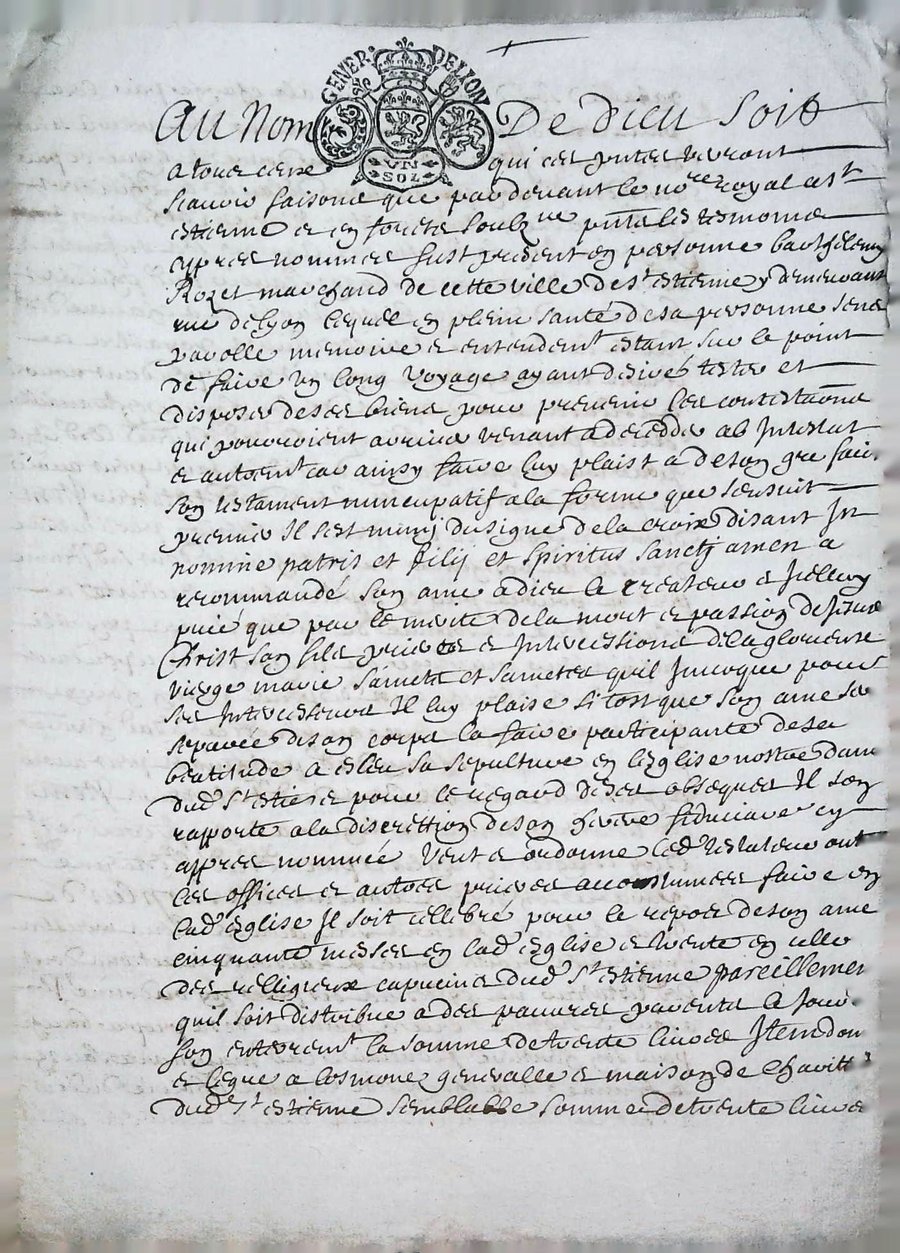 GENER. DE LYON
UN
SOL
Au Nom De Dieu Soit
a tous ceux qui ces pntes verront
scavoir faisons que pardevant le no.re royal a St
estienne et en forests soubz.ne pnts les tesmoins
cypres nommes fust present en personne barthelemy
Rozet marchand de cette ville de St estienne y demeurant
rue de lyon lequel en plein santé de sa personne sens
parolle memoire et entendent estant sur le point
de faire un long voyage ayant desiré tester et
disposer de ses biens pour prevenir les contestaons
qui pourroient arriver venant a deceder ab intestat
et autrent car ainsy faire luy plaist a de son gre fait
son testament nuncupatif a la forme que sensuit
premier Il sest muny du signe de la croix disant In
nomine patris et filij et spiritus sanctj amen a
recommandé son ame a dieu le createur et Icelluy
prié que par le merite de la mort et passion de Jesus
Christ son fils prieres et Intercessions de la glorieuse
vierge marie saincts et sainctes quil Invoque pour
ses Intercesseurs Il luy plaise sitost que son ame se
separée de son corps la faire participante de sa
beatitude a esleu sa sepulture en leglise nostre dame
dud St estie et pour le regard de ses obseques Il sen
rapporte a la discrettion de son herire fiduciaire cy
appres nommée Veut et ordonne led testateur out
les offices et autres prieres accoustumees faire en
lad eglise Il soit cellebré pour le repos de son ame
cinquante messes en lad eglise et trente en celle
des relligieux capucins dud St estienne pareillemen
quil soit distribue a des pauvres parents le jour
son enterremt la somme de trente livres Item don
et legue a losmone generalle et maison de Charitt
dud St estienne semblable somme de trente livres